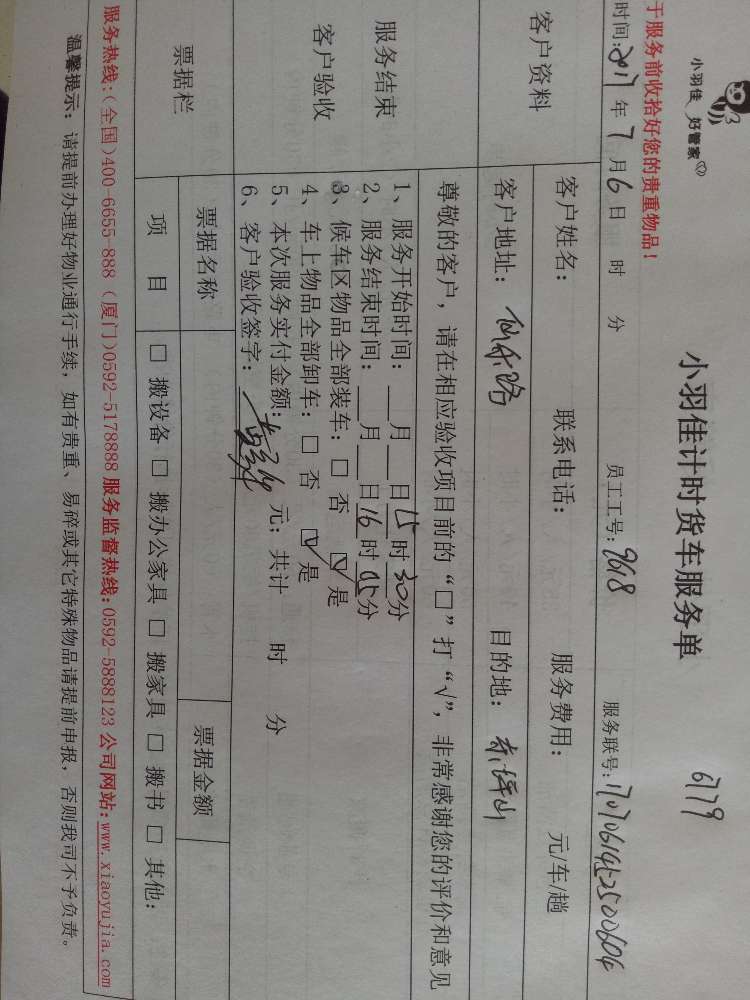 小羽佳 好管家
小羽佳计时货车服务单
6779
于服务前收拾好您的贵重物品！
时间：2017年7月6日 时 分 员工工号：9618 服务联号：1707061452500604
客户资料
客户姓名： 联系电话： 服务费用： 元/车/趟
客户地址：仙乐路 目的地：东坪山
尊敬的客户，请在相应验收项目前的“□”打“√”，非常感谢您的评价和意见
服务结束
客户验收
1、服务开始时间：___月___日15时30分
2、服务结束时间：___月___日16时05分
3、候车区物品全部装车：□ 否 ☑ 是
4、车上物品全部卸车：□ 否 ☑ 是
5、本次服务实付金额： 元；共计 时 分
6、客户验收签字：
票据栏
票据名称 票据金额
项 目 □ 搬设备 □ 搬办公家具 □ 搬家具 □ 搬书 □ 其他：
服务热线：（全国）400-6655-888（厦门）0592-5178888 服务监督热线：0592-5888123 公司网站：www.xiaoyujia.com
温馨提示：请提前办理好物业通行手续，如有贵重、易碎或其它特殊物品请提前申报，否则我司不予负责。